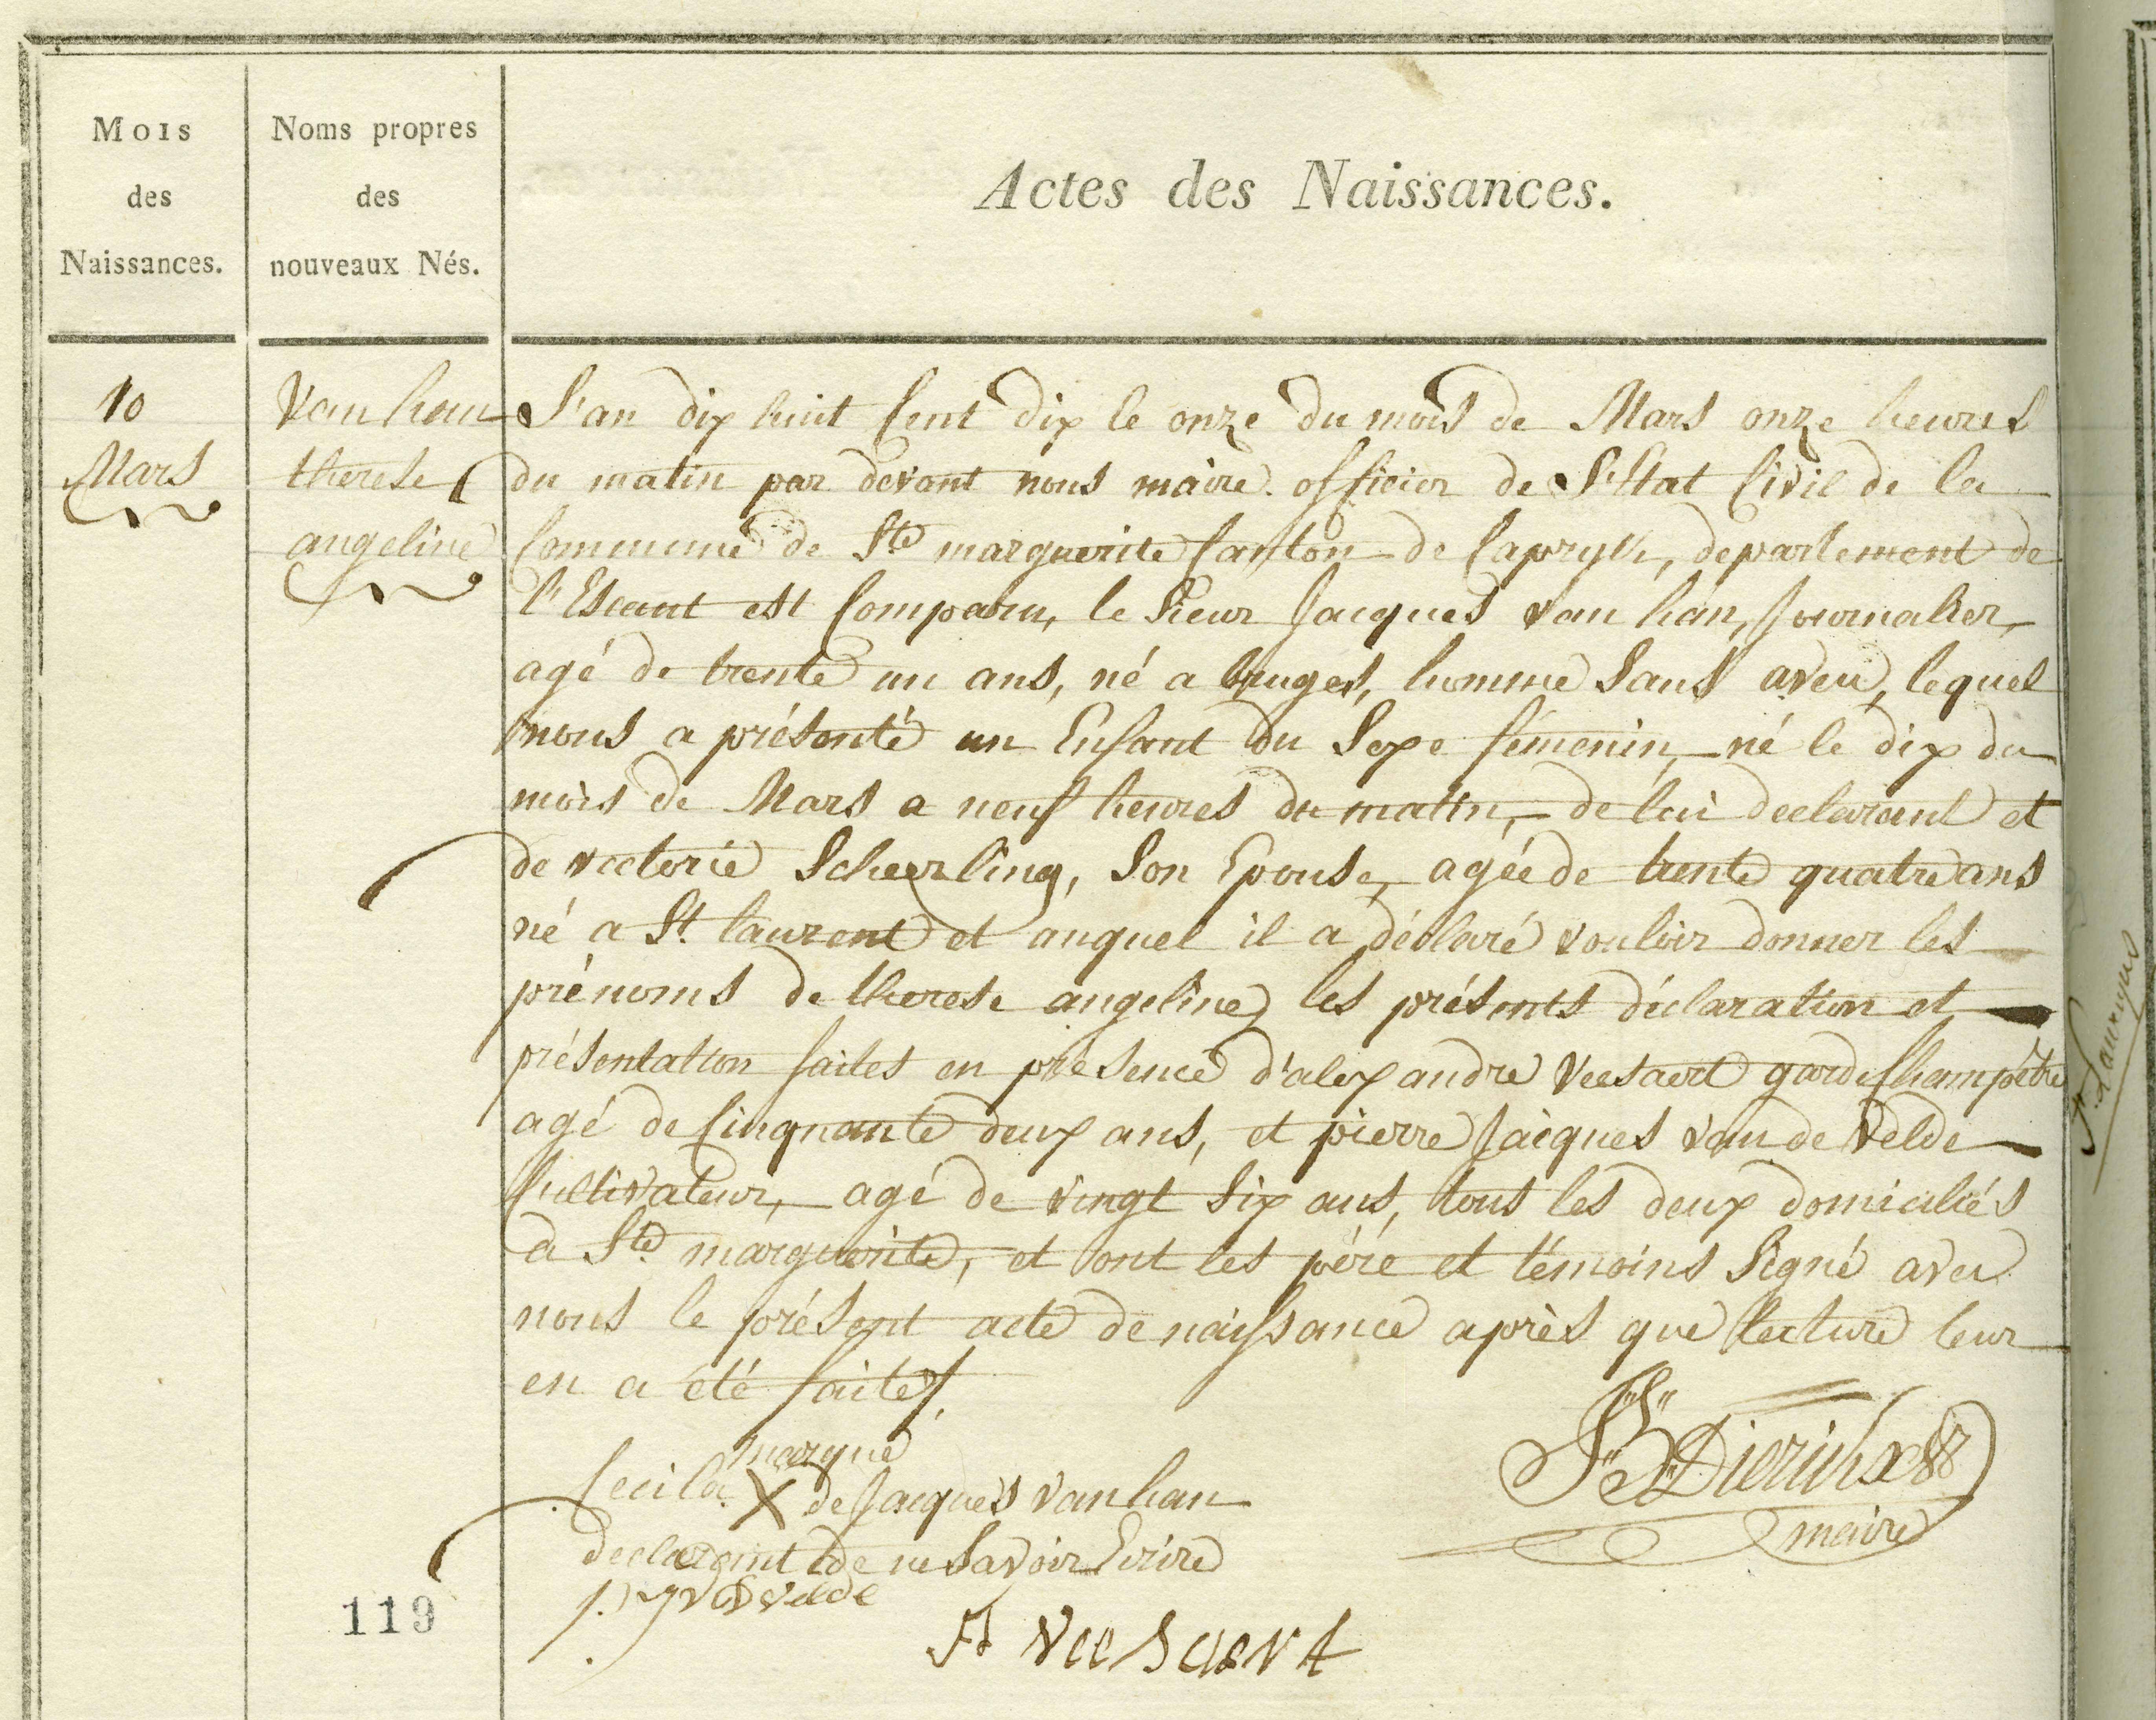 Mois
des
Naissances.
Noms propres
des
nouveaux Nés.
Actes des Naissances.
10
Mars
Van han
therese
angeline
L'an dix huit Cent dix le onze du mois de Mars onze heures
du matin par devant nous maire officier de L'Etat Civil de la
Commune de Ste marguerite Canton de Capryk, departement de
l'Escaut est Comparu, le Sieur Jacques van han, Journalier,
agé de trente un ans, né a bruges, homme Sans aveu, lequel
nous a présenté un Enfant du Sexe fémenin, né le dix du
mois de Mars a neuf heures du matin, de lui declarant et
de victorie Scheerlinq, Son Epouse, agée de trente quatre ans
né a St. laurent et auquel il a déclaré vouloir donner les
prénoms de therese angeline, les présents déclaration et
présentation faites en présence d'alexandre Veesaert garde Champétre
agé de Cinquante deux ans, et pierre Jacques van de Velde
Cultivateur, agé de vingt Six ans, tous les deux domiciliés
a Ste marguerite, et ont les pére et témoins Signé avec
nous le présent acte de naissance après que lecture leur
en a été faite.
marque
Ceci la X de Jacques van han
declarant de ne Savoir Ecrire
Dierickx
maire
velde
A Veesaert
119
St. Laureyns